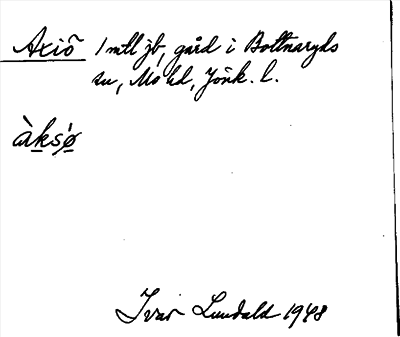 Axiö 1 mtl jb, gård i Bottnaryds
sn, Mo hd, Jönk. l.
àksǿ
Ivar Lundahl 1948